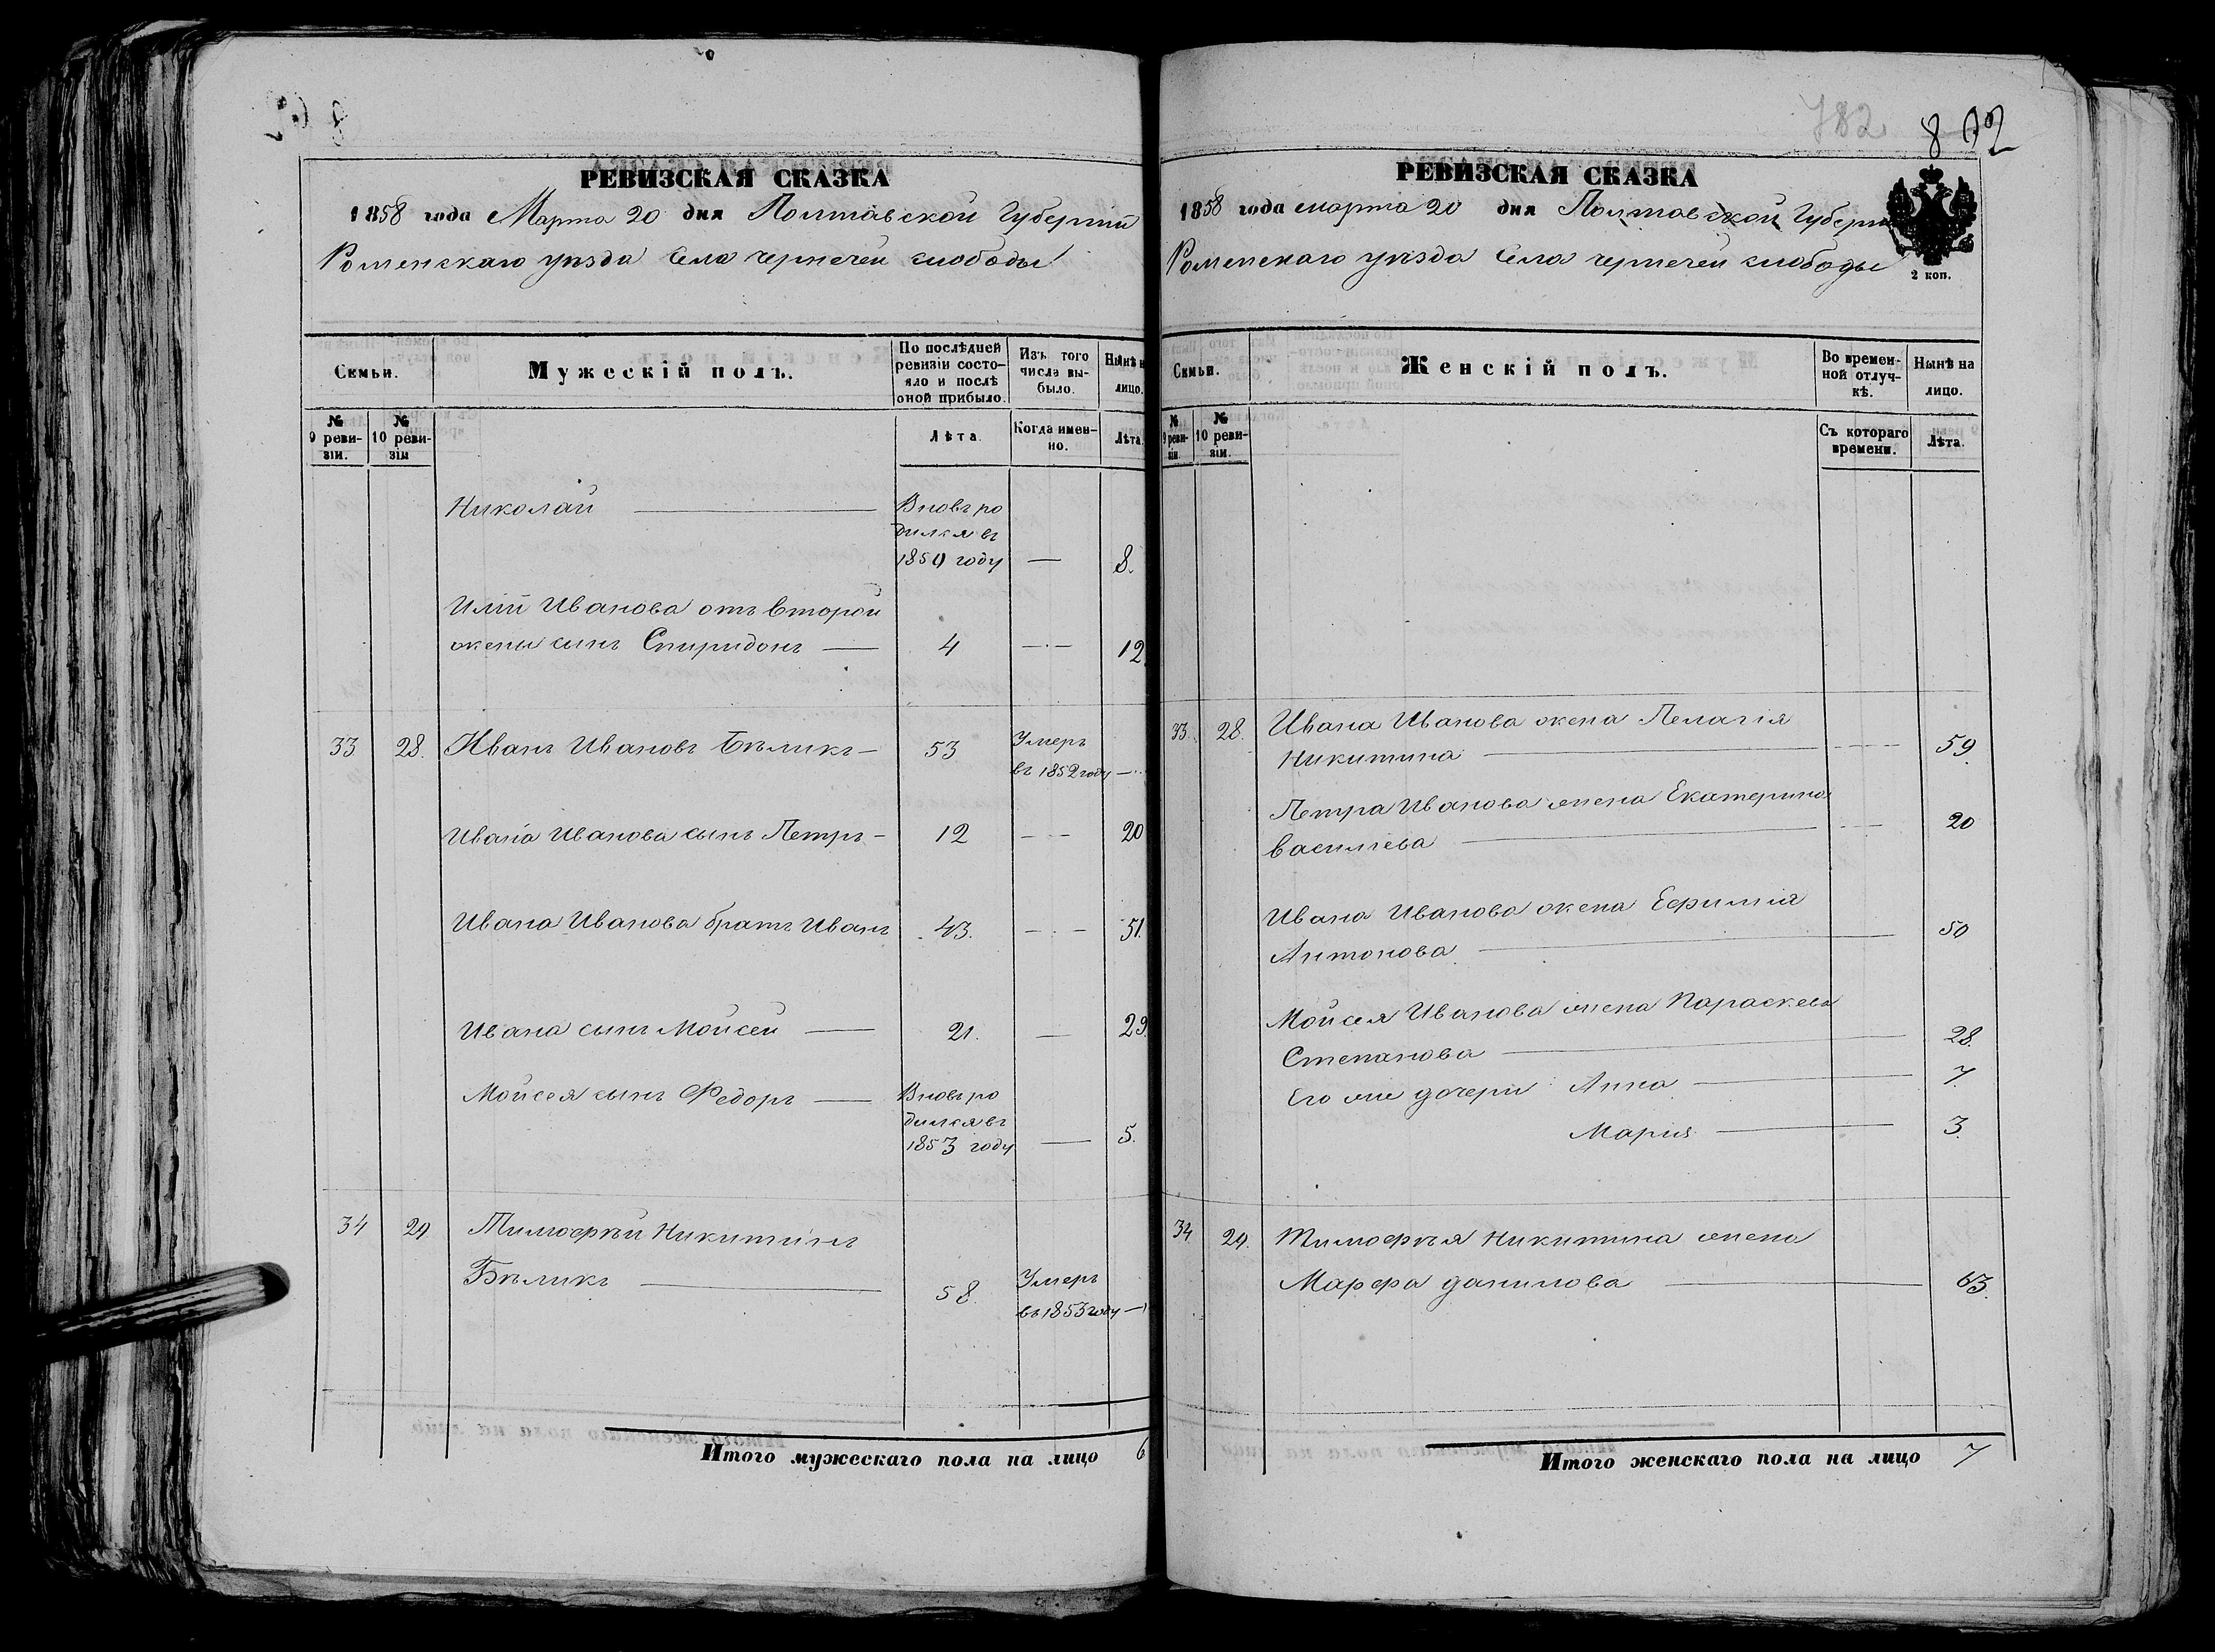 782 802
РЕВИЗСКАЯ СКАЗКА
1858 года Марта 20 дня Полтавской Губернiи
Роменскаго уѣзда Села чернечей слободы
Семьи.
Мужескій полъ.
По послѣдней ревизіи состояло и послѣ оной прибыло.
Изъ того числа выбыло.
Нынѣ н лицо.
№ 9 ревизіи.
№ 10 ревизіи
Лѣта.
Когда именно.
Лѣта.
Николай — Вновь родился въ 1850 году — 8.
Иліи Иванова отъ второй
жены сынъ Спиридонъ — 4 — 12.
33 28. Иванъ Ивановъ Бѣликъ — 53 Умеръ въ 1852 году —
Ивана Иванова сынъ Петръ — 12 — 20
Ивана Иванова братъ Иванъ 43. — 51.
Ивана сынъ Мойсей — 21. — 29.
Мойсея сынъ Федоръ — Вновь родился въ 1853 году — 5.
34 29 Тимофѣй Никитинъ
Бѣликъ — 58. Умеръ въ 1853 году —
Итого мужескаго пола на лицо 6
РЕВИЗСКАЯ СКАЗКА
1858 года марта 20 дня Полтавской Губерн
Роменскаго уѣзда Села чернечей слободы
2 коп.
Семьи.
Женскій полъ.
Во временной отлучкѣ.
Нынѣ на лицо.
№ 9 ревизіи.
№ 10 ревизіи.
Съ котораго времени.
Лѣта.
33. 28. Ивана Иванова жена Пелагія
Никитина — 59.
Петра Иванова жена Екатерина
васильева — 20
Ивана Иванова жена Ефимія
Антонова — 50
Мойсея Иванова жена Параскева
Степанова — 28.
Его же дочери Анна — 7.
Марія — 3.
34 29. Тимофѣя Никитина жена
Марфа данилова — 63.
Итого женскаго пола на лицо 7